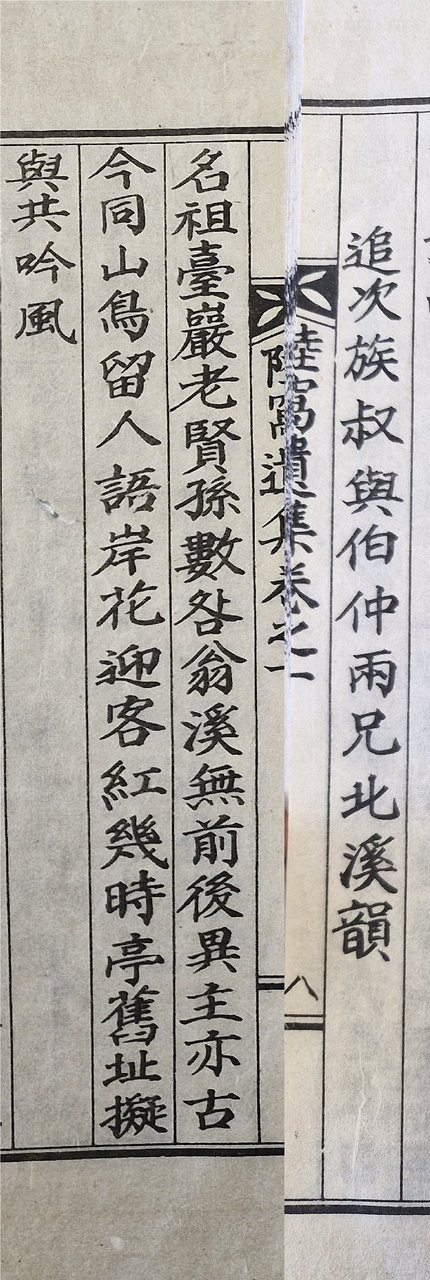 追次族叔與伯仲兩兄北溪韻
陸窩遺集卷之一 八
名祖臺巖老賢孫數咎翁溪無前後異主亦古
今同山鳥留人語岸花迎客紅幾時亭舊址擬
與共吟風